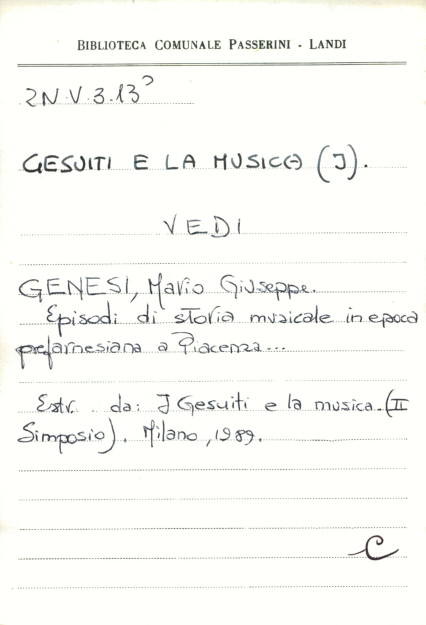 BIBLIOTECA COMUNALE PASSERINI - LANDI
2N.V.3.13⁾
GESUITI E LA MUSICA (I).
VEDI
GENESI, Mario Giuseppe.
Episodi di storia musicale in epoca
prefarnesiana a Piacenza...
Estr. da: I Gesuiti e la musica.(II
Simposio). Milano, 1989.
C